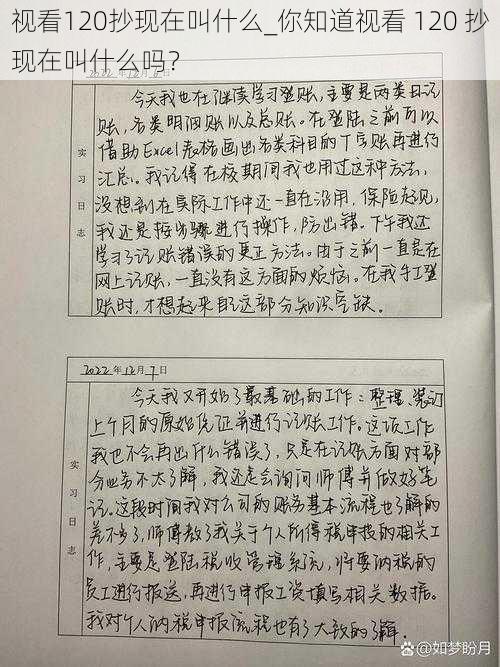 视看120抄现在叫什么_你知道视看 120 抄
现在叫什么吗?
实习日志
今天我也在继续学习登账,主要是两类日记
账,各类明细账以及总账。在登陆之前可以
借助Excel表格画出各类科目的丁字账再进行
汇总。我记得在校期间我也用过这种方法,
没想到在实际工作中还一直在沿用,保险起见,
我还是按步骤进行操作,防出错。下午我还
学习了记账错误的更正方法。由于之前一直是在
网上记账,一直没有这方面的烦恼。在我手工登
账时,才想起来自己这部分知识空缺。
2022年12月7日
实习日志
今天我又开始了最基础的工作:整理、装订
上个月的原始凭证并进行记账工作。这项工作
我也不会再出什么错误了,只是在记账方面对部
分业务不太了解,我还是会询问师傅并做好笔
记。这段时间我对公司的账务基本流程也了解的
差不多了,师傅教了我关于个人所得税申报的相关工
作,主要是登陆税收管理系统,将要纳税的
员工进行报送,再进行申报工资填写相关数据。
我对个人纳税申报流程也有了大致的了解。
@如梦盼月